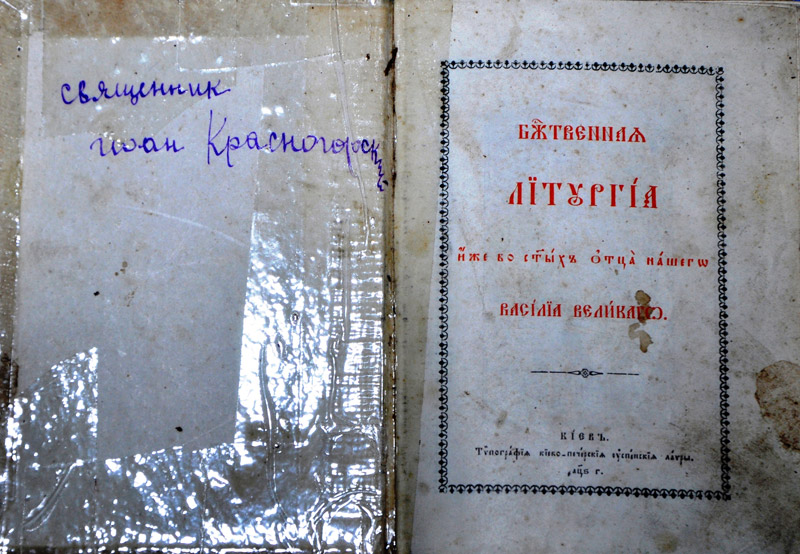 священник
иоан Красногорский
БЖ҃ТВЕННАѦ
ЛЇТꙊРГІ́Ѧ
И҆́же во ст҃ы́хъ ѻ҆тца̀ на́шегѡ
ВАСІ́ЛЇѦ ВЕЛИ́КАГѠ.
КІ́ЕВЪ.
Тѷпогра́фїѧ кїево-пече́рскїѧ ᲂу҆спе́нскїѧ ла́ѵры.
г.